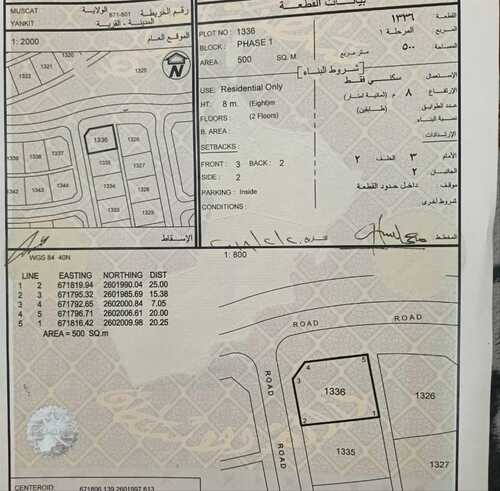 بيانات القطعة
MUSCAT الولاية
671-601 رقم الخريطة
YANKIT المدينة - القرية
1: 2000 الموقع العام
1320
1321
1322
1336
1335
1326
1334
1327
1329
PLOT NO : 1336 ١٣٣٦ القطعة
BLOCK : PHASE 1 المرحلة ١ المربع
AREA : 500 SQ. M متر مربع ٥٠٠ المساحة
شروط البناء
USE: Residential Only سكني فقط الاستعمال
HT: 8 m. (Eight)m ٨ م (ثمانية أمتار) الارتفاع
FLOORS : (2 Floors) (طابقين) عدد الطوابق
B. AREA : نسبة البناء
SETBACKS : الارتدادات
FRONT : 3 BACK : 2 ٢ الخلف ٣ الأمام
SIDE : 2 ٢ الجانبان
PARKING : Inside داخل حدود القطعة موقف
CONDITIONS : شروط أخرى
الإسقاط
WGS 84 40N
المخطط
1: 800
LINE EASTING NORTHING DIST
1 2 671819.94 2601990.04 25.00
2 3 671795.32 2601985.69 15.38
3 4 671792.65 2602000.84 7.05
4 5 671796.71 2602006.61 20.00
5 1 671816.42 2602009.98 20.25
AREA = 500 SQ.m
ROAD
ROAD
ROAD
1336
1
2
3
4
5
1326
1335
1327
CENTEROID: 671806.139 2601997.613